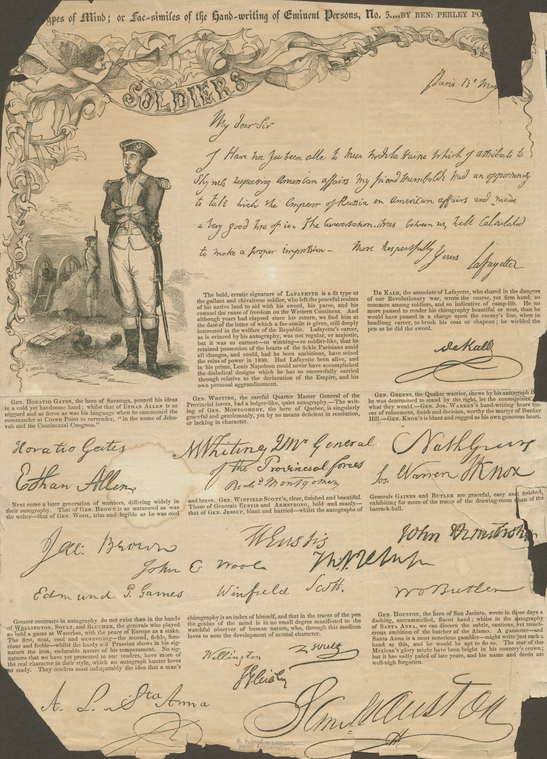 ypes of Mind; or Fac-similes of the Hand-writing of Eminent Persons, No. 5....BY BEN: PERLEY PO
SOLDIERS
My dear Sir
The bold, erratic signature of LAFAYETTE is a fit type of
the gallant and chivalrous soldier, who left the peaceful realms
of his native land to aid with his sword, his purse, and his
counsel the cause of freedom on the Western Continent. And
although years had elapsed since his return, we find him at
the date of the letter of which a fac-simile is given, still deeply
interested in the welfare of the Republic. Lafayette's career,
as is evinced by his autography, was not regular, or majestic,
but it was so earnest—so winning—so soldier-like, that he
retained possession of the hearts of the fickle Parisians amid
all changes, and could, had he been ambitious, have seized
the reins of power in 1830. Had Lafayette been alive, and
in his prime, Louis Napoleon could never have accomplished
the diabolical designs which he has so successfully carried
through relative to the declaration of the Empire, and his
own personal aggrandizement.
DE KALB, the associate of Lafayette, who shared in the dangers
of our Revolutionary war, wrote the coarse, yet firm hand, so
common among soldiers, and so indicative of camp-life. He no
more paused to render his chirography beautiful or neat, than he
would have paused in a charge upon the enemy's line, when in
headlong career, to brush his coat or chapeau; he wielded the
pen as he did the sword.
DeKalb
GEN. HORATIO GATES, the hero of Saratoga, penned his ideas
in a cold yet handsome hand; whilst that of ETHAN ALLEN is as
rigged and fierce as was his language when he summoned the
commander at Crown Point to surrender, "in the name of Jeho-
vah and the Continental Congress."
GEN. WHITING, the careful Quarter Master General of the
Provincial forces, had a ledger-like, quiet autography—The writ-
ing of GEN. MONTGOMERY, the hero of Quebec, is singularly
graceful and gentlemanly, yet by no means deficient in resolution,
or lacking in character.
GEN. GREENE, the Quaker warrior, shows by his autograph
be was determined to stand by the right, let the consequences
what they may—GEN. JOS. WARREN'S hand-writing bears
ces of refinement, finish and decision, worthy the martyr of Bunker
Hill.—GEN. KNOX'S is blunt and rugged as his own generous heart.
Horatio Gates
Ethan Allen
M Whiting QM General
of the Provincial forces
Montgomery
Nath Greene
Jos Warren Knox
Next come a later generation of warriors, differing widely in
their autography. That of GEN. BROWN is as untutored as was
the writer—that of GEN. WOOL, trim and legible as he was cool
and brave. GEN. WINFIELD SCOTT'S, clear, finished and beautiful.
Those of Generals EUSTIS and ARMSTRONG, bold and manly—
that of GEN. JESUP, blunt and hurried—whilst the autographs of
Generals GAINES and BUTLER are graceful, easy and finished,
exhibiting far more of the traces of the drawing-room than of the
barrack-ball.
Jac: Brown
John E Wool
Edmund P. Gaines
W Eustis
Winfield Scott.
John Armstrong
W O Butler
Greater contrasts in autography do not exist than in the hand
of WELLINGTON, SOULT, and BLUCHER, the generals who played
so bold a game at Waterloo, with the peace of Europe as a stake.
The first, neat, cool and unwavering—the second,
and feeble—whilst the hardy old Prussian shows in sig-
nature the iron, endurable nature of his temperament. No sig-
natures that we have yet presented to our readers, have more of
the real character in their style, which an autograph hunter loves
to study. They confirm most indisputably the idea that a man's
chirography is an index of himself, and that in the traces of the pen
the genius of the mind is in no small degree manifested to the
watchful observer of human nature, who, through this medium
loves to note the development of mortal character.
GEN. HOUSTON, the hero of San Jacinto, wrote in those days a
dashing, untrammelled, frank hand; whilst in the autography
of SANTA ANNA, we can discern the subtle, cautious, yet treach-
erous emblem of the butcher of the Alamo. A gamester—and
Santa Anna is a most notorious gambler—might write just such a
hand as this, and he would be apt to do so. The star of this
Mexican's glory might have been bright in his country's crown;
but it has sadly paled of late years, and his name and deeds are
well-nigh forgotten.
Wellington
Soult
A. L. Sta Anna
Sam Houston